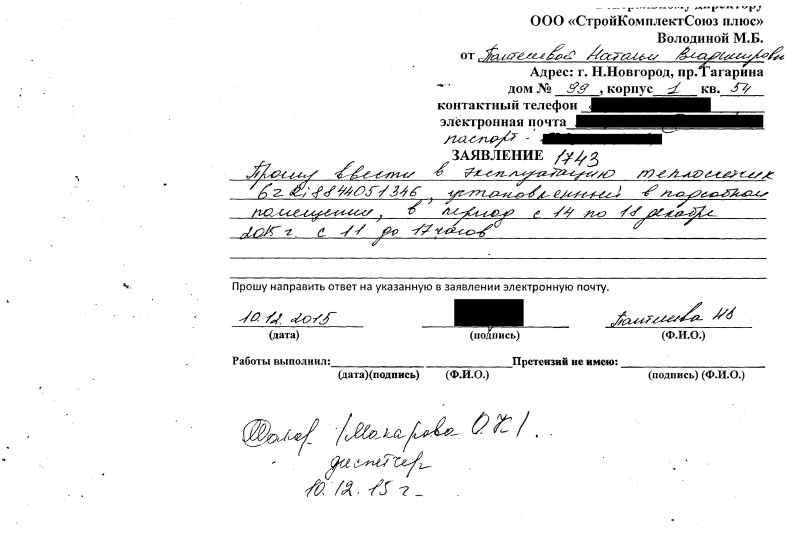 Генеральному директору
ООО «СтройКомплектСоюз плюс»
Володиной М.Б.
от Пантелеевой Натальи Владимировны
Адрес: г. Н.Новгород, пр.Гагарина
дом № 99, корпус 1 кв. 54
контактный телефон
электронная почта
паспорт -
ЗАЯВЛЕНИЕ 1743
Прошу ввести в эксплуатацию теплосчетчик
8844051346, установленный в подсобном
помещении, в период с 14 по 18 декабря
2015 г с 11 до 17 часов
Прошу направить ответ на указанную в заявлении электронную почту.
10.12.2015 НВ
(дата) (подпись) (Ф.И.О.)
Работы выполнил: Претензий не имею:
(дата)(подпись) (Ф.И.О.) (подпись) (Ф.И.О.)
/Макарова О.К/.
диспетчер
10.12.15 г